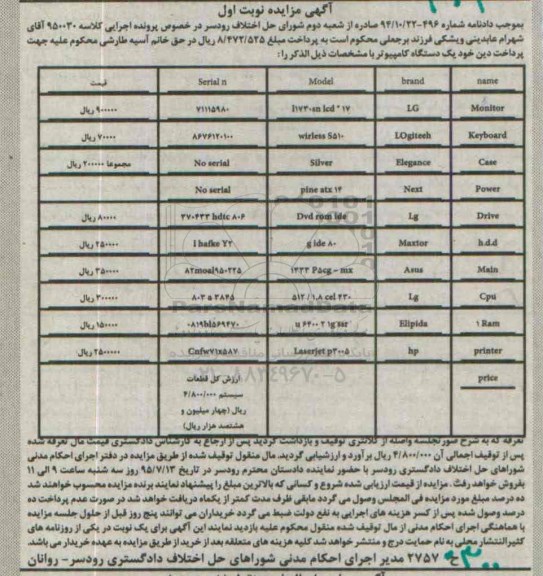 آگهی مزایده نوبت اول
بموجب دادنامه شماره ۴۹۶-۹۴/۱۰/۲۲ صادره از شعبه دوم شورای حل اختلاف رودسر در خصوص پرونده اجرایی کلاسه ۹۵۰۰۳۰ آقای
شهرام عابدینی ویشکی فرزند برجعلی محکوم است به پرداخت مبلغ ۸/۴۷۳/۵۲۵ ریال در حق خانم آسیه طارشی محکوم علیه جهت
پرداخت دین خود یک دستگاه کامپیوتر با مشخصات ذیل الذکر را:
name brand Model Serial n قیمت
Monitor LG ۹۰۰۰۰۰ ریال
Keyboard LOgiteeh wirless ۷۰۰۰۰ ریال
Case Elegance Silver No serial مجموعا ۲۰۰۰۰۰ ریال
Power Next pine atx ۱۴ No serial
Drive Lg Dvd rom ide ۸۰۰۰۰ ریال
h.d.d Maxtor g ide ۸۰ ۲۵۰۰۰۰ ریال
Main Asus ۳۵۰۰۰۰ ریال
Cpu Lg ۳۰۰۰۰۰ ریال
۱ Ram Elipida ۱۵۰۰۰۰ ریال
printer hp Laserjet p۳۰۰۵ ۲۵۰۰۰۰۰ ریال
price ارزش کل قطعات
سیستم ۴/۸۰۰/۰۰۰
ریال (چهار میلیون و
هشتصد هزار ریال)
ParsNamadData
۰۲۱-۸۸۳۴۹۶۷۰-۵
تعرفه که به شرح صورتجلسه واصله از کلانتری توقیف و بازداشت گردید پس از ارجاع به کارشناس دادگستری قیمت مال تعرفه شده
پس از توقیف اجمالی آن ۴/۸۰۰/۰۰۰ ریال برآورد و ارزشیابی گردید. مال منقول توقیف شده از طریق مزایده در دفتر اجرای احکام مدنی
شوراهای حل اختلاف دادگستری رودسر با حضور نماینده دادستان محترم رودسر در تاریخ ۹۵/۷/۱۳ روز سه شنبه ساعت ۹ الی ۱۱
بفروش خواهد رفت. مزایده از قیمت ارزیابی شده شروع و کسانی که بالاترین مبلغ را پیشنهاد نمایند برنده مزایده محسوب خواهند شد
ده درصد مبلغ مورد مزایده فی المجلس وصول می گردد مابقی ظرف مدت کمتر از یکماه دریافت خواهد شد در صورت عدم پرداخت ده
درصد وصول شده پس از کسر هزینه های اجرایی به نفع دولت ضبط می گردد خریداران می توانند پنج روز قبل از حلول جلسه مزایده
با هماهنگی اجرای احکام مدنی از مال توقیف شده منقول محکوم علیه بازدید نمایند این آگهی برای یک نوبت در یکی از روزنامه های
کثیرالانتشار محلی به نام حمایت درج و منتشر خواهد شد کلیه هزینه های متعلقه بعد از خرید از طریق مزایده به عهده خریدار می باشد.
۲۷۵۷ مدیر اجرای احکام مدنی شوراهای حل اختلاف دادگستری رودسر - روانان